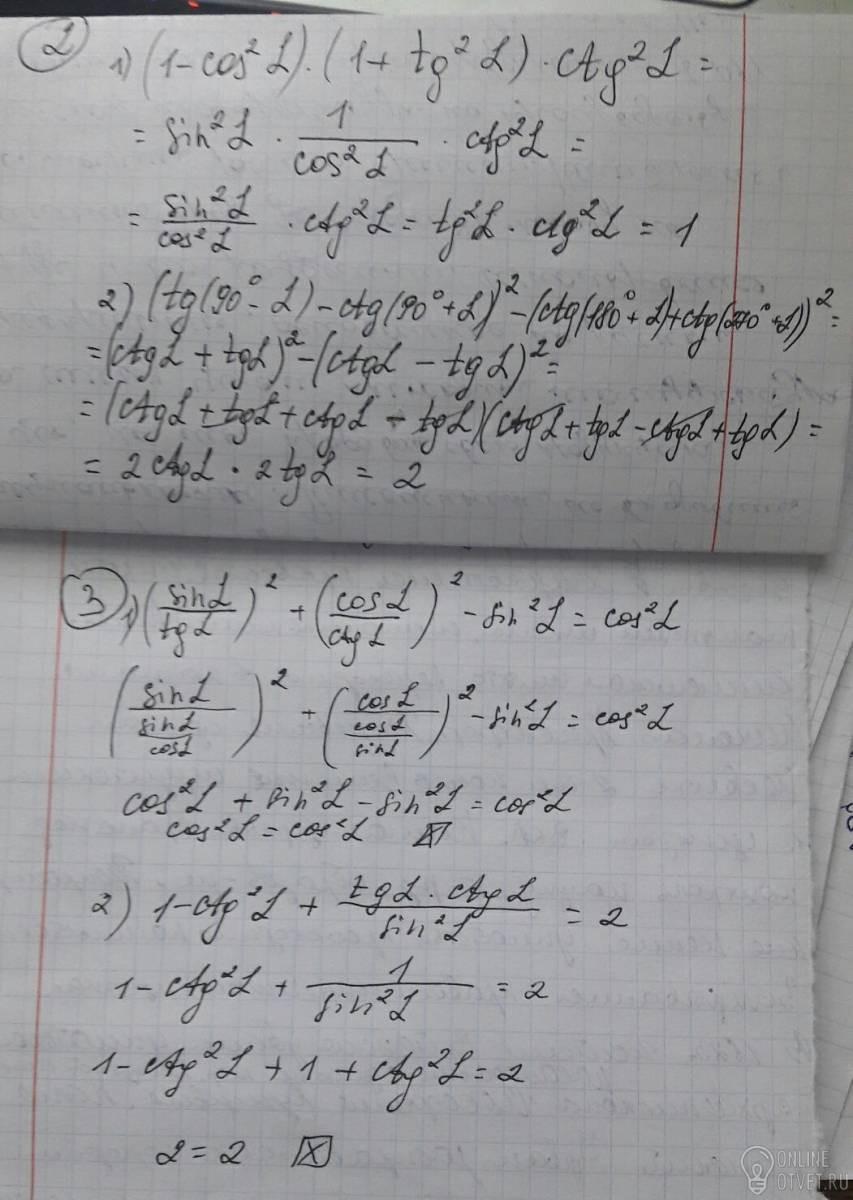 2
1) (1-cos²α)·(1+tg²α)·ctg²α=
= sin²α · 1/cos²α · ctg²α =
= sin²α/cos²α · ctg²α = tg²α · ctg²α = 1
2) (tg(90°-α)-ctg(90°+α))²-(ctg(180°+α)+ctg(270°+α))²=
=(ctgα+tgα)²-(ctgα-tgα)²=
=(ctgα+tgα+ctgα-tgα)(ctgα+tgα-ctgα+tgα)=
= 2ctgα · 2tgα = 2
3
1) (sinα/tgα)² + (cosα/ctgα)² - sin²α = cos²α
(sinα/(sinα/cosα))² + (cosα/(cosα/sinα))² - sin²α = cos²α
cos²α + sin²α - sin²α = cos²α
cos²α = cos²α ☒
2) 1-ctg²α + tgα·ctgα/sin²α = 2
1-ctg²α + 1/sin²α = 2
1-ctg²α+1+ctg²α=2
2=2 ☒
ONLINE
OTVET.RU